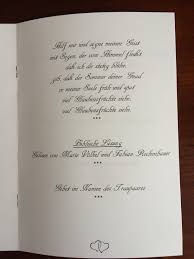 Hilf mir und segne meinen Geist
mit Segen, der vom Himmel fleußt,
daß ich dir stetig blühe;
gib, daß der Sommer deiner Gnad
in meiner Seele früh und spat
viel Glaubensfrüchte ziehe,
viel Glaubensfrüchte ziehe.
***
Biblische Lesung
Gelesen von Marie und Fabian
***
Gebet im Namen des Traupaares
***